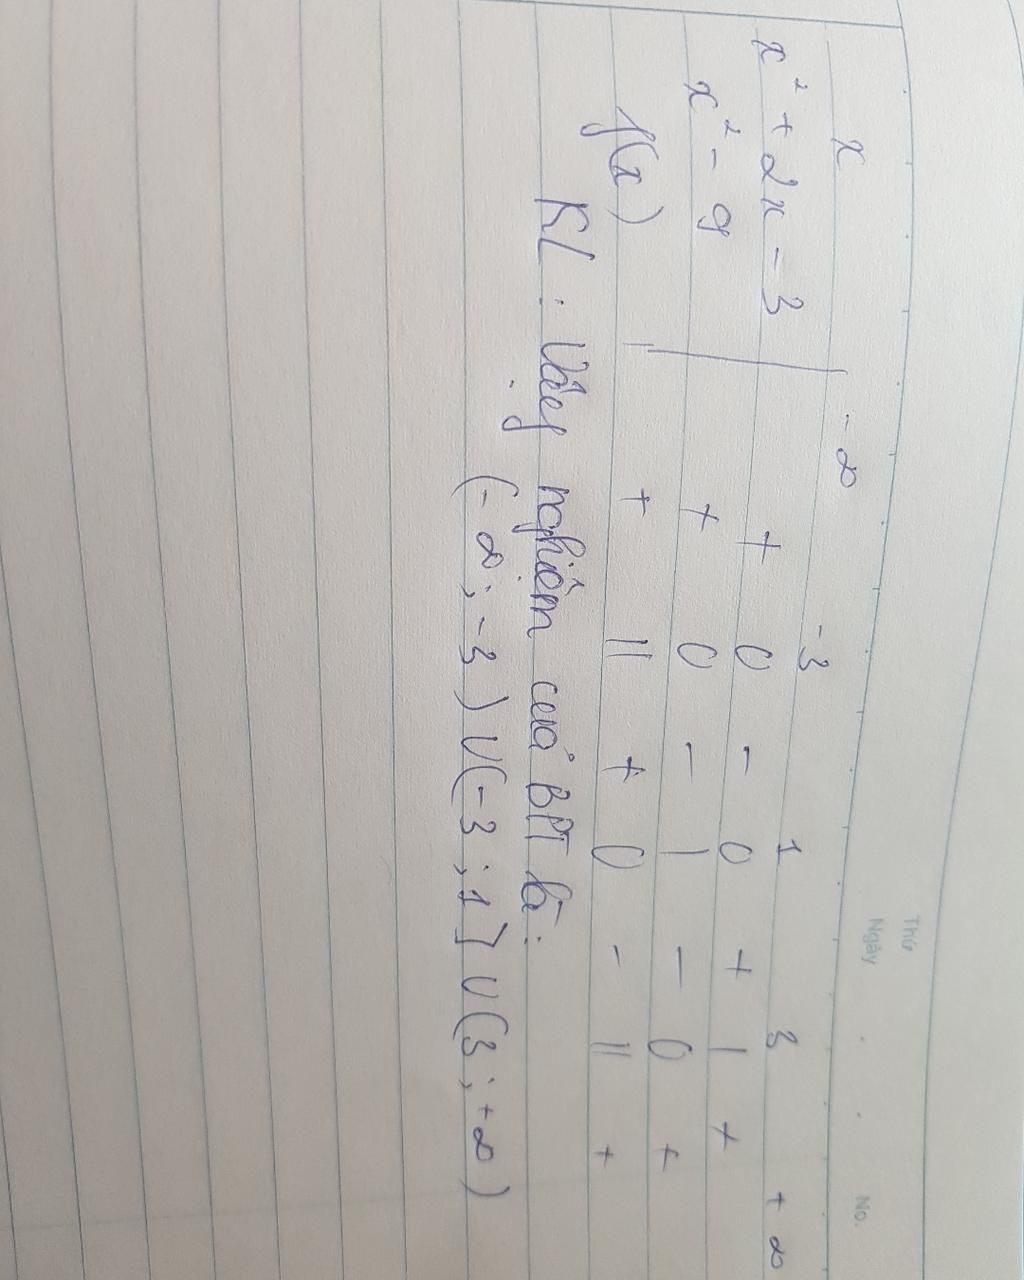 Thứ
Ngày . . No.
x -∞ -3 1 3 +∞
x² + 2x - 3 + 0 - 0 + | +
x² - 9 + 0 - | - 0 +
f(x) + || + 0 - || +
KL : Vậy nghiệm của BPT là :
(-∞ ; -3) ∪ (-3 ; 1] ∪ (3 ; +∞)